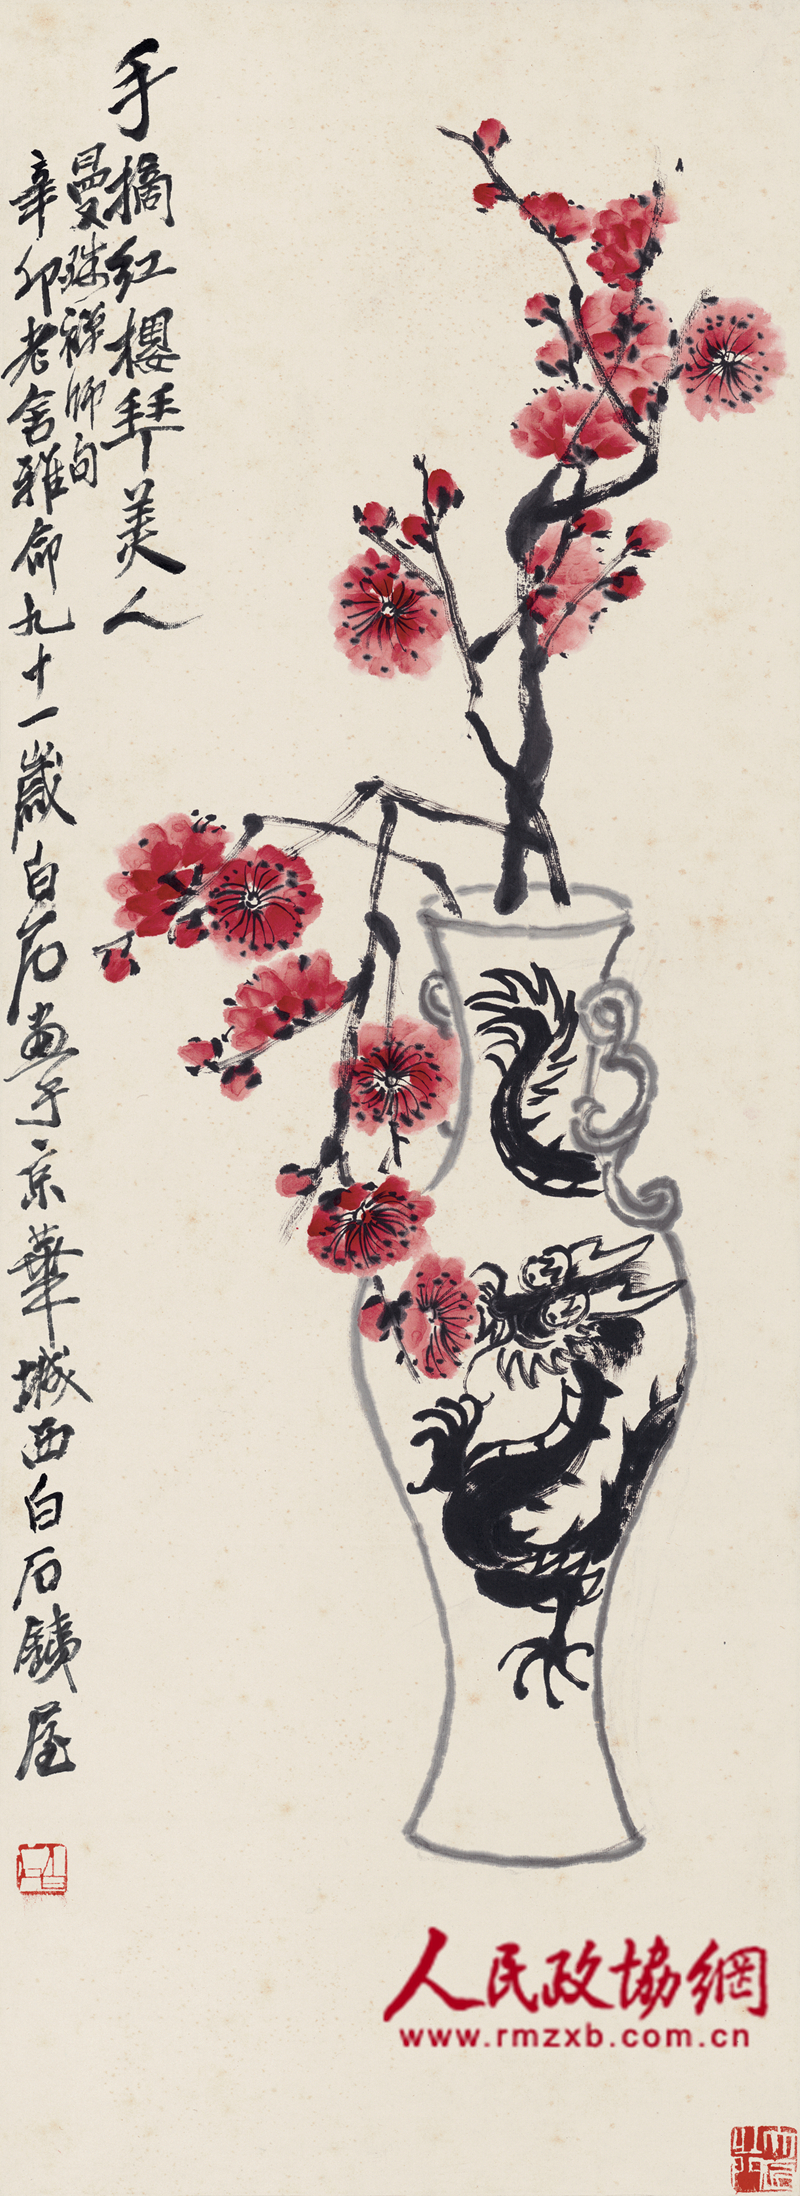 手摘红樱拜美人
曼殊禅師句
辛卯老舍雅命九十一歲白石畫于京華城西白石鐵屋
人民政协網
www.rmzxb.com.cn